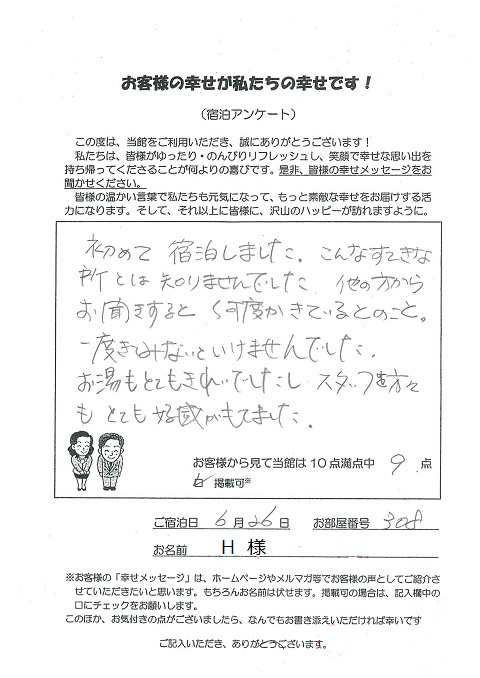 お客様の幸せが私たちの幸せです！
（宿泊アンケート）
この度は、当館をご利用いただき、誠にありがとうございます！
私たちは、皆様がゆったり・のんびりリフレッシュし、笑顔で幸せな思い出を
持ち帰ってくださることが何よりの喜びです。是非、皆様の幸せメッセージをお
聞かせください。
皆様の温かい言葉で私たちも元気になって、もっと素敵な幸せをお届けする活
力になります。そして、それ以上に皆様に、沢山のハッピーが訪れますように。
初めて宿泊しました。こんなすてきな
所とは知りませんでした。他の方から
お聞きすると何度かきているとのこと。
一度きてみないといけませんでした。
お湯もとてもきれいでしたし スタッフの方々
も とても好感がもてました。
お客様から見て当館は10点満点中 9 点
☑ 掲載可※
ご宿泊日 6月26日 お部屋番号 308
お名前 H 様
※お客様の「幸せメッセージ」は、ホームページやメルマガ等でお客様の声としてご紹介さ
せていただきたいと思います。もちろんお名前は伏せます。掲載可の場合は、記入欄中の
口にチェックをお願いします。
このほか、お気付きの点がございましたら、なんでもお書き添えいただければ幸いです
ご記入いただき、ありがとうございます。